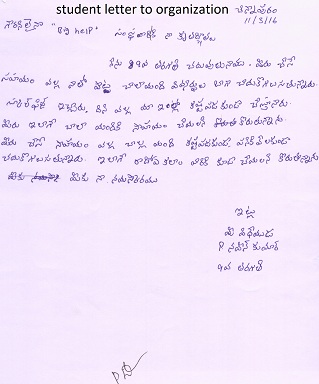 student letter to organization
చెన్నాపురం
11/3/16
గౌరవనీయులైన "Big help" సంస్థవారికి నా కృతజ్ఞతలు
నేను 9వ తరగతి చదువుతున్నాను. మీరు చేసే
సహాయం వల్ల నాలో చాలామంది విద్యార్థులు బాగా చదువుకోగలుగుతున్నారు.
స్కాలర్‌షిప్ ఇచ్చారు, దీని వల్ల మా ఇంట్లో కష్టపడకుండా చేస్తున్నారు.
మీరు ఇలాగే చాలా మందికి సాహయం చేయాలని కోరుకుంటున్నాను.
మీరు చేసే సాహయం వల్ల చాలా మంది కష్టపడకుండా, పనికి వెళ్లకుండా
చదువుకోగలుగుతున్నారు. ఇలాగే రాబోయే కాలం వారికి కూడా చేయాలని కోరుతున్నాను
మీకు నా నమస్కారములు
ఇట్లు
మీ విధేయుడు
P నవీన్ కుమార్
9వ తరగతి